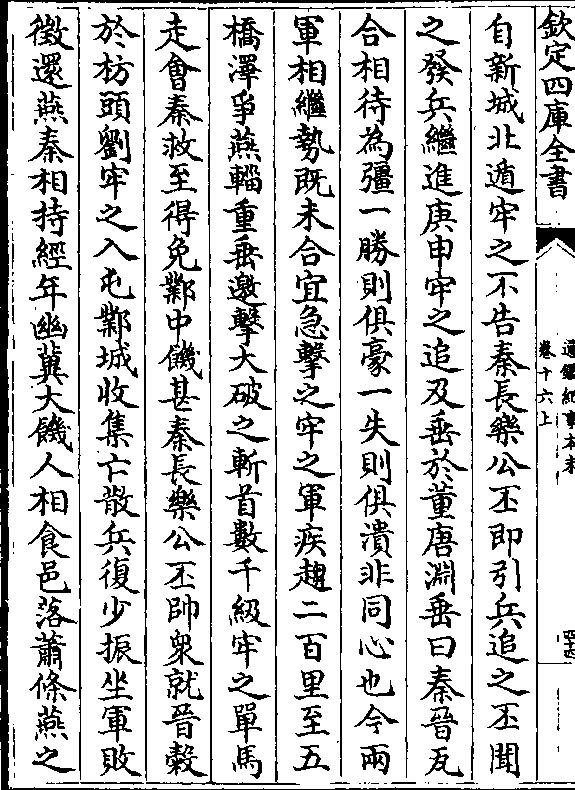 欽定四庫全書
通鑑紀事本末
卷十六上
自新城北遁牢之不告秦長樂公丕即引兵追之丕聞
之發兵繼進庚申牢之追及垂於董唐淵垂曰秦晉瓦
合相待為彊一勝則俱豪一失則俱潰非同心也今兩
軍相繼勢既未合宜急擊之牢之軍疾趨二百里至五
橋澤爭燕輜重垂邀擊大破之斬首數千級牢之單馬
走會秦救至得免鄴中饑甚秦長樂公丕帥衆就晉穀
於枋頭劉牢之入屯鄴城收集亡散兵復少振坐軍敗
徵還燕秦相持經年幽冀大饑人相食邑落蕭條燕之